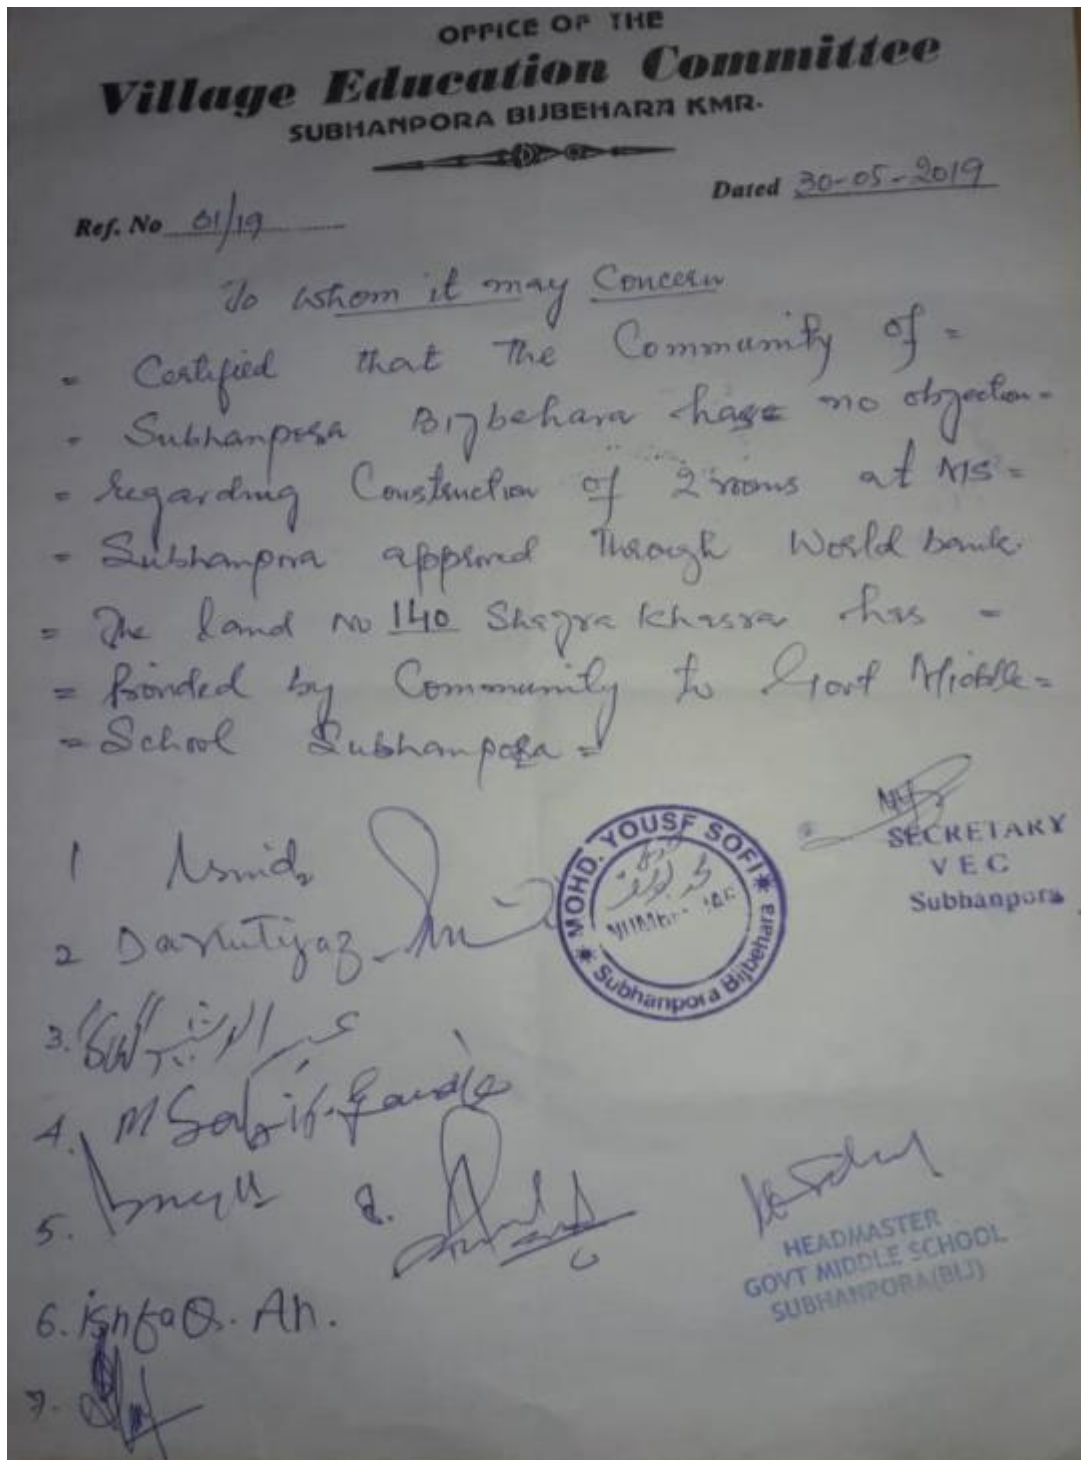 OFFICE OF THE
Village Education Committee
SUBHANPORA BIJBEHARA KMR.
Dated 30-05-2019
Ref. No 01/19
To whom it may Concern
= Certified that the Community of =
= Subhanpora Bijbehara have no objection =
= regarding Construction of 2 rooms at M/S =
= Subhanpora approved through World bank.
= The land no 140 Shajra Khasra has =
= by Community to Govt Middle =
= School Subhanpora =
SECRETARY
V E C
Subhanpora
MOHD. YOUSF SOFI
Subhanpora Bijbehara
1
2
3. عبد الرشید
4. M
5.
8.
HEADMASTER
GOVT MIDDLE SCHOOL
SUBHANPORA (BIJ)
6. ishfaQ. Ah.
7.